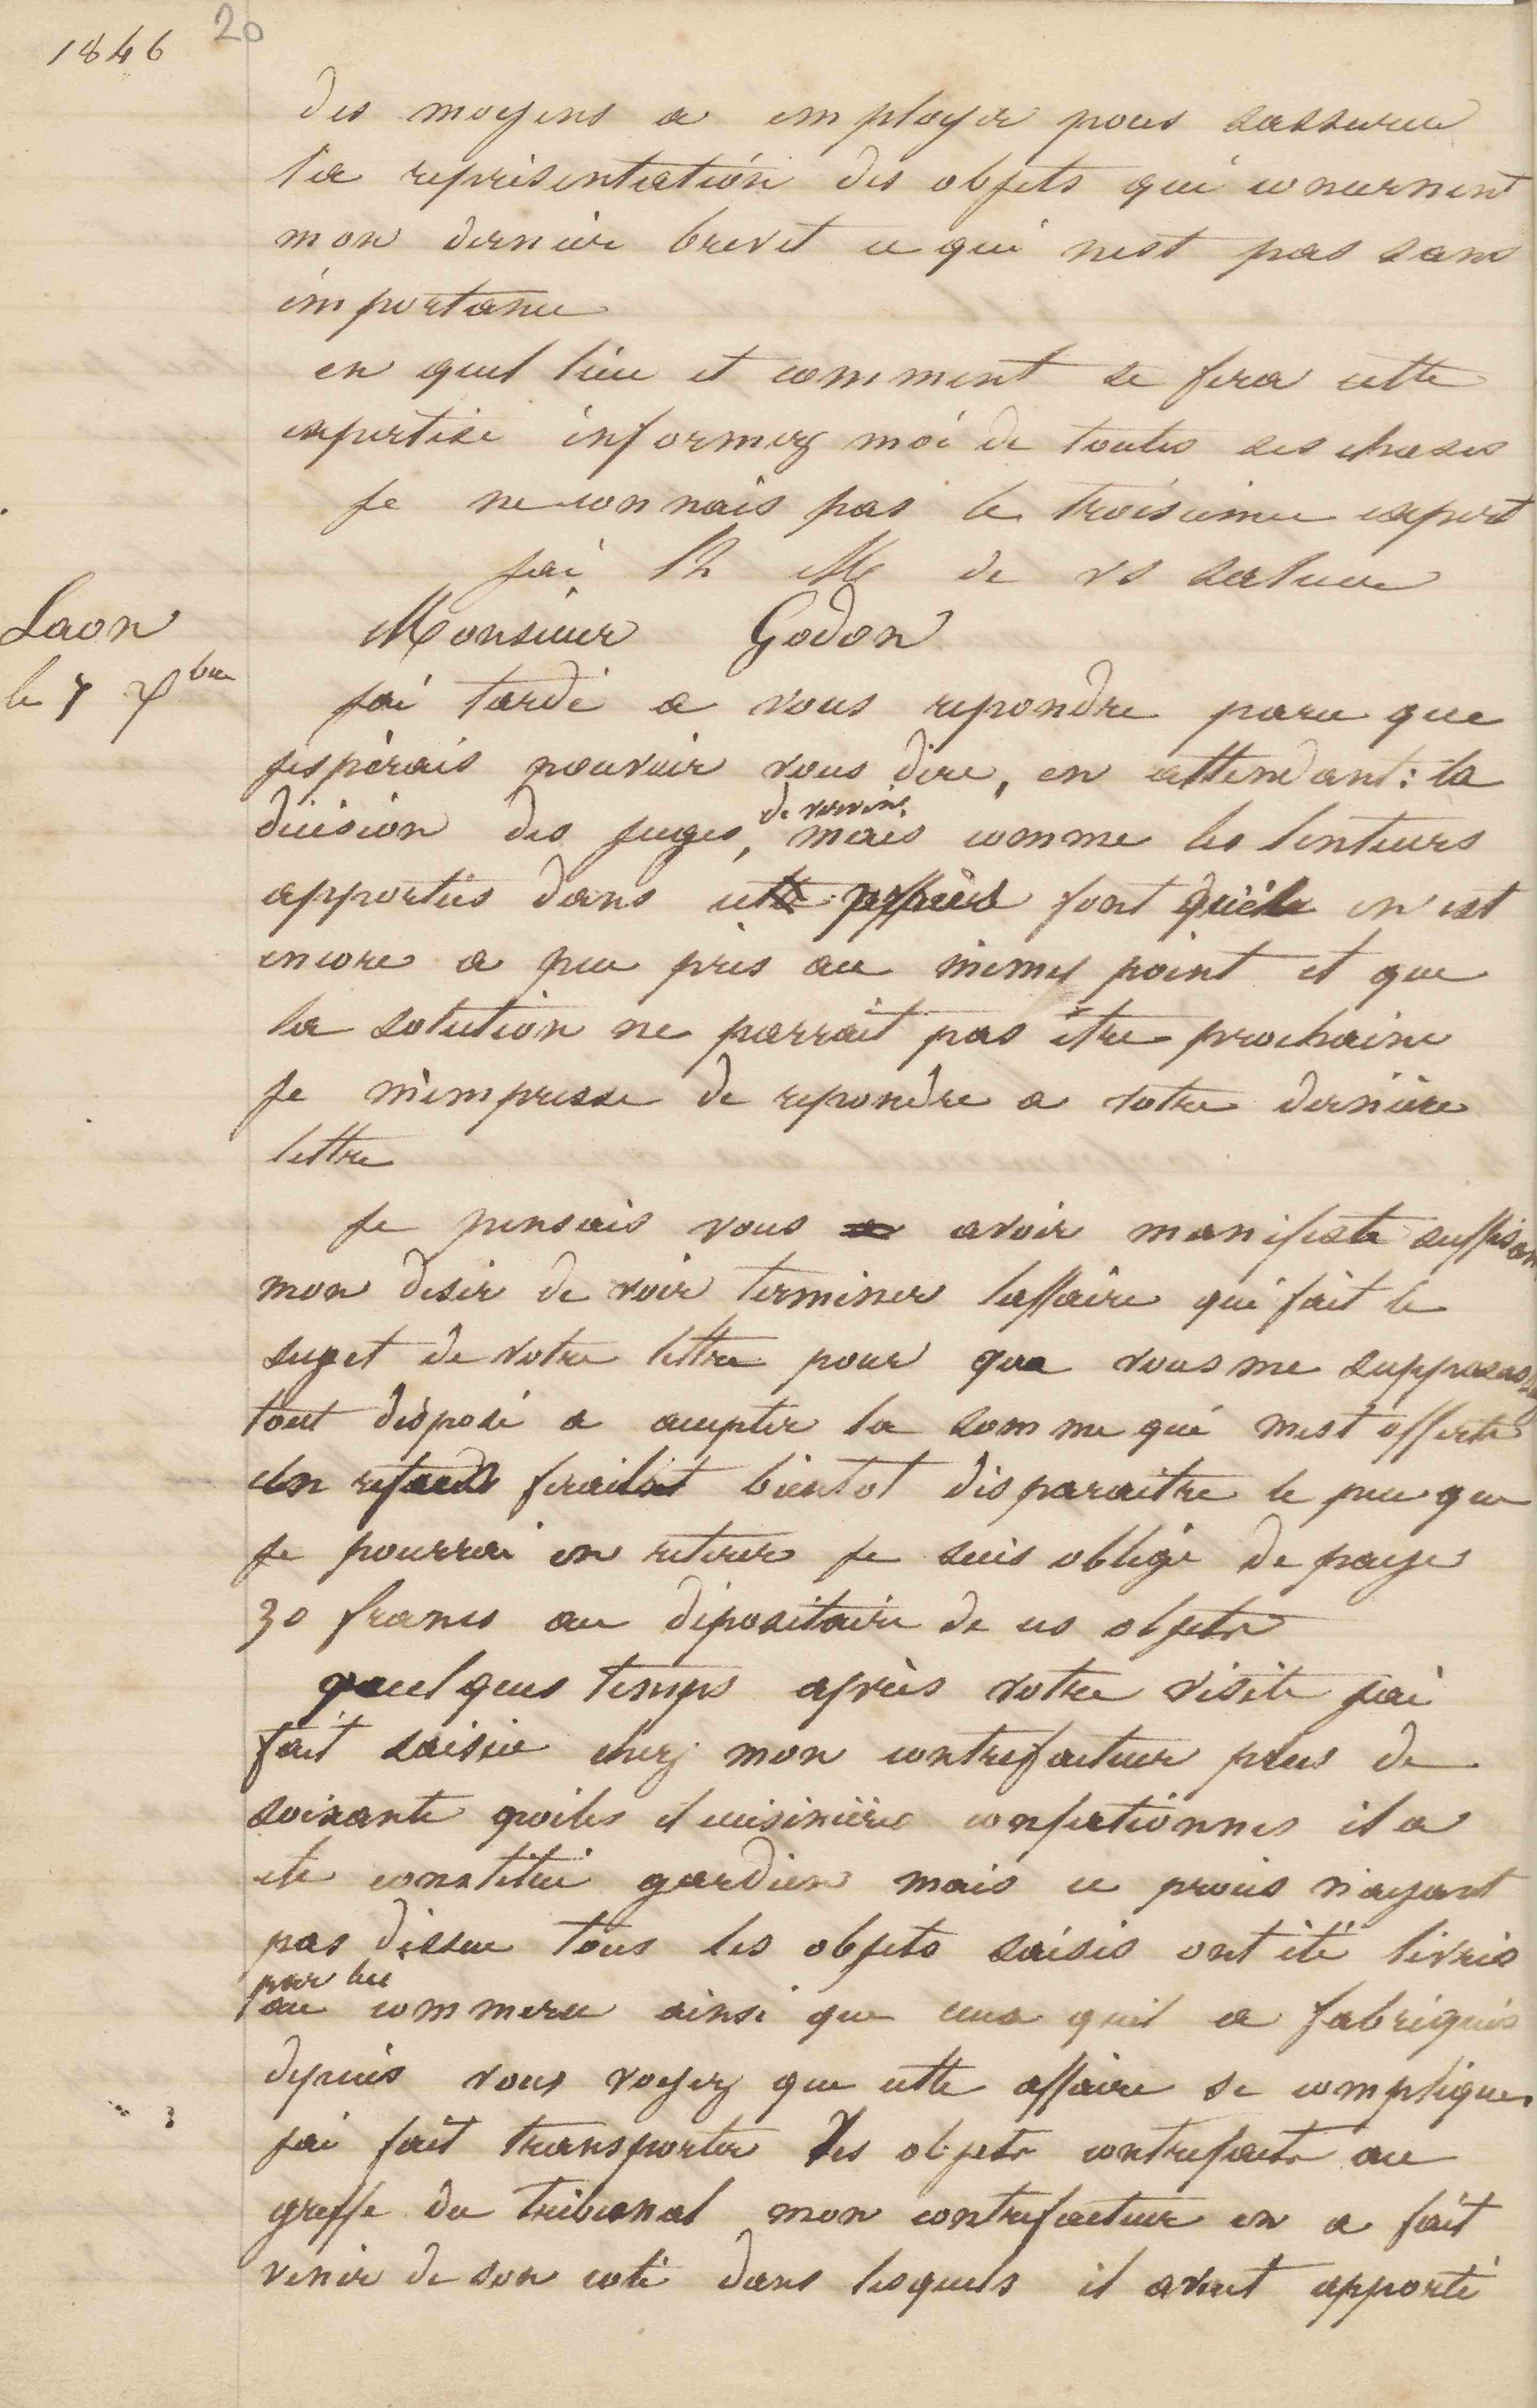 1846 20
des moyens a employer pour sassurer
la représentation des objets qui concernent
mon dernier brevet ce qui nest pas sans
importance
en quel lieu et comment se fera cette
expertise informez moi de toutes ses choses
je ne connais pas le troisieme expert
jai lh de vs saluer
Laon
le 7 7bre
Monsieur Godon
jai tardé a vous repondre parce que
jespérais pouvoir vous dire, en attendant: la
décision des juges, de vervins. mais comme les lenteurs
apportées dans font en est
encore a peu près au même point et que
la solution ne parrait pas être prochaine
je m'empresse de repondre a votre dernière
lettre
je pensais vous avoir manifesté suffisam
mon desir de voir terminer laffaire qui fait le
suget de votre lettre pour que vous me supposassiez
tout disposé a accepter la somme qui mest offerte
un retard ferait bientot disparaitre le peu que
je pourrai en retirer je suis obligé de payer
30 francs au dépositaire de ces objets
quelques temps après votre visite jai
fait saisir chez mon contrefacteur plus de
soixante poiles et cuisinière confectionnés il a
ete constitué gardien mais ce procès n'ayant
pas dissue tous les objets saisis ont été livrés
par lui
au commerce ainsi que ceux quil a fabriqués
depuis vous voyez que cette affaire se complique.
jai fait transporter des objets contrefaits au
greffe du tribunal mon contrefacteur en a fait
venir de son coté dans lesquels il avait apporté